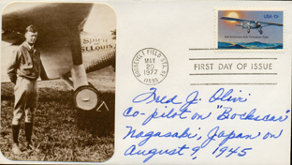 Spirit
St. Louis
ROOSEVELT FIELD STA. NY
MAY
20
1977
11530
USA 13c
FIRST DAY OF ISSUE
Fred J. Olivi
Co-pilot on "Bockscar"
Nagasaki, Japan on
August 9, 1945